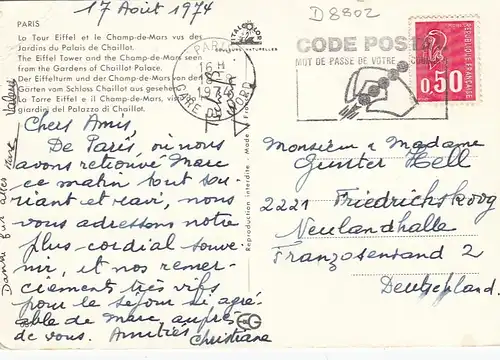 17 Août 1974
D8802
PARIS
La Tour Eiffel et le Champ-de-Mars vus des
Jardins du Palais de Chaillot.
The Eiffel Tower and the Champ-de-Mars seen
from the Gardens of Chaillot Palace.
Der Eiffelturm und der Champ-de-Mars von den
Garten vom Schloss Chaillot aus gesehen.
La Torre Eiffel e il Champ-de-Mars, visti
giardini del Palazzo di Chaillot.
PARIS
16 H
1974
GARE DU NORD
CODE POSTAL
MOT DE PASSE DE VOTRE
REPUBLIQUE FRANÇAISE
0,50
Chers Amis.
De Paris où nous
avons retrouvé Marc
ce matin tout sou-
riant et ravi, nous
vous adressons notre
plus cordial souve-
nir, et nos remer-
ciements très vifs
pour le séjour si agré-
able de Marc auprès
de vous. Amitiés
Christiane
Danke für alles Marc
Valerie
Reproduction interdite - Made
EG
Monsieur & Madame
Gunter Hell
2221 Friedrichskoog
Neulandhalle
Franzosensand 2
Deutschland.